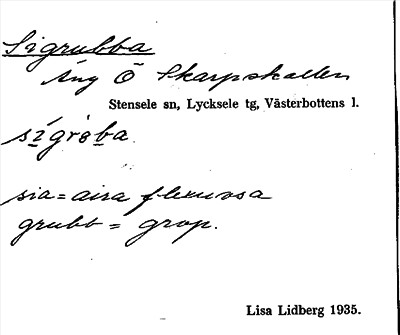 Sigrubba
Äng Ö Skarpskallen
Stensele sn, Lycksele tg, Västerbottens l.
sígròba
sia = aira flexuosa
grubb = grop.
Lisa Lidberg 1935.